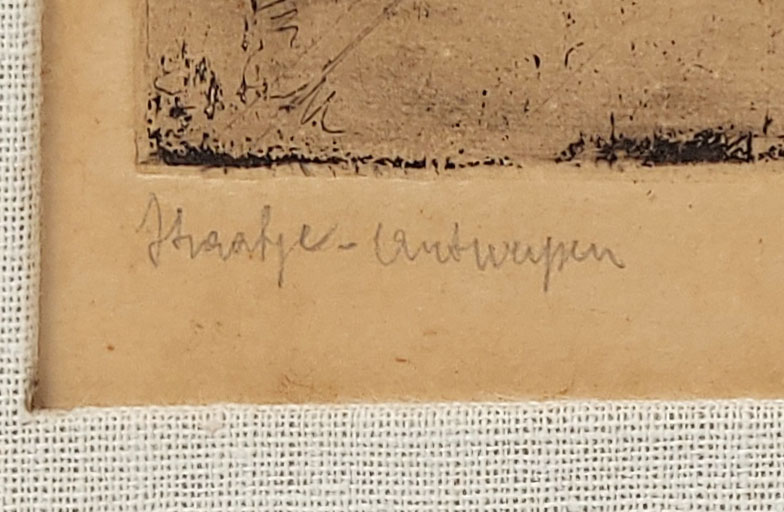 Straatje - Antwerpen